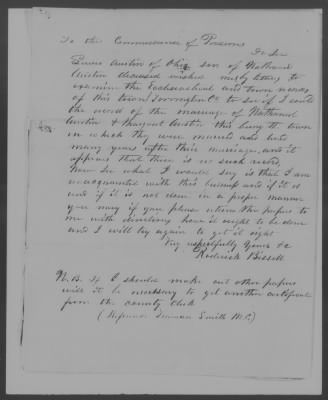 To the Commissioner of Pensions
Dr Sir
Lewis Austin of Ohio son of Nathaniel
Austin deceased wished me by letter to
examine the Ecclesiastical and town records
of this town Torrington Ct to see if I could
the record of the marriage of Nathaniel
Austin & Margaret Austin this being the town
in which they were married and lived
many years after their marriage, and it
appears that there is no such record,
Now Sir what I would say is that I am
unacquainted with this business and if it is
and if it is not done in a proper manner
you may if you please return the papers to
me with directions how it ought to be done
and I will try again to get it right
Very respectfully Yours &c
Roderick Bissell
N.B. If I should make out other papers
will it be necessary to get another certificate
from the county clerk
( Truman Smith M.C.)